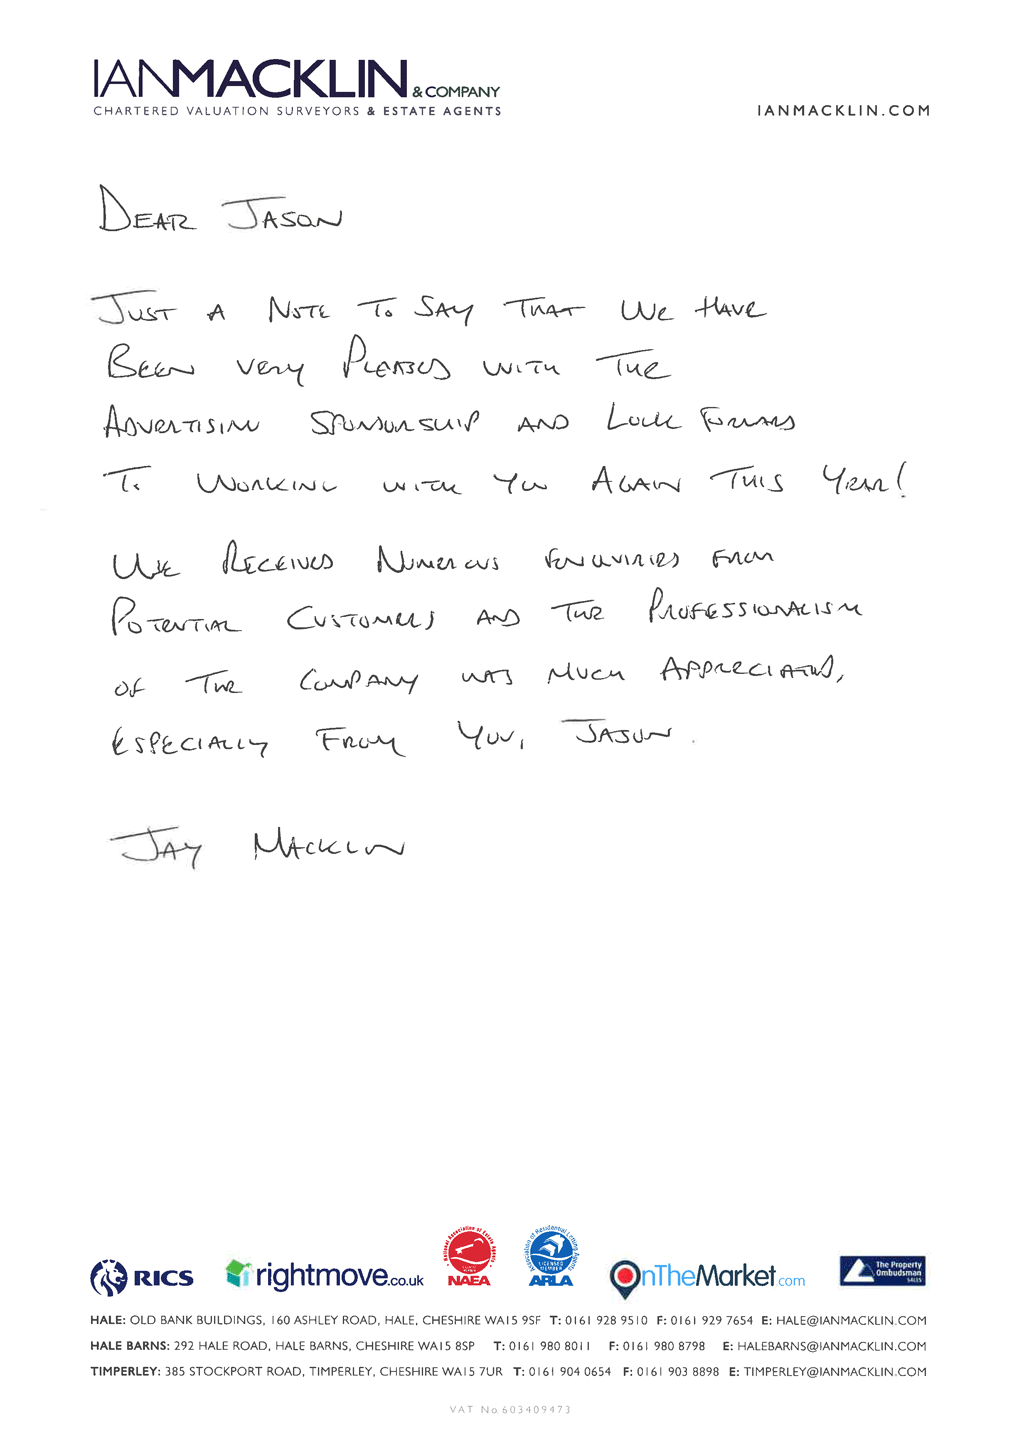 IANMACKLIN & COMPANY
CHARTERED VALUATION SURVEYORS & ESTATE AGENTS
IANMACKLIN.COM
DEAR JASON
JUST A NOTE TO SAY THAT WE HAVE
BEEN VERY PLEASED WITH THE
ADVERTISING SPONSORSHIP AND LOOK FORWARD
TO WORKING WITH YOU AGAIN THIS YEAR!
WE RECEIVED NUMEROUS ENQUIRIES FROM
POTENTIAL CUSTOMERS AND THE PROFESSIONALISM
OF THE COMPANY WAS MUCH APPRECIATED,
ESPECIALLY FROM YOU, JASON.
JAY MACKLIN
RICS
rightmove.co.uk
National Association of Estate Agents
NAEA
Association of Residential Letting Agents
LICENSED MEMBER
ARLA
OnTheMarket.com
The Property
Ombudsman
SALES
HALE: OLD BANK BUILDINGS, 160 ASHLEY ROAD, HALE, CHESHIRE WA15 9SF T: 0161 928 9510 F: 0161 929 7654 E: HALE@IANMACKLIN.COM
HALE BARNS: 292 HALE ROAD, HALE BARNS, CHESHIRE WA15 8SP T: 0161 980 8011 F: 0161 980 8798 E: HALEBARNS@IANMACKLIN.COM
TIMPERLEY: 385 STOCKPORT ROAD, TIMPERLEY, CHESHIRE WA15 7UR T: 0161 904 0654 F: 0161 903 8898 E: TIMPERLEY@IANMACKLIN.COM
VAT No 603409473